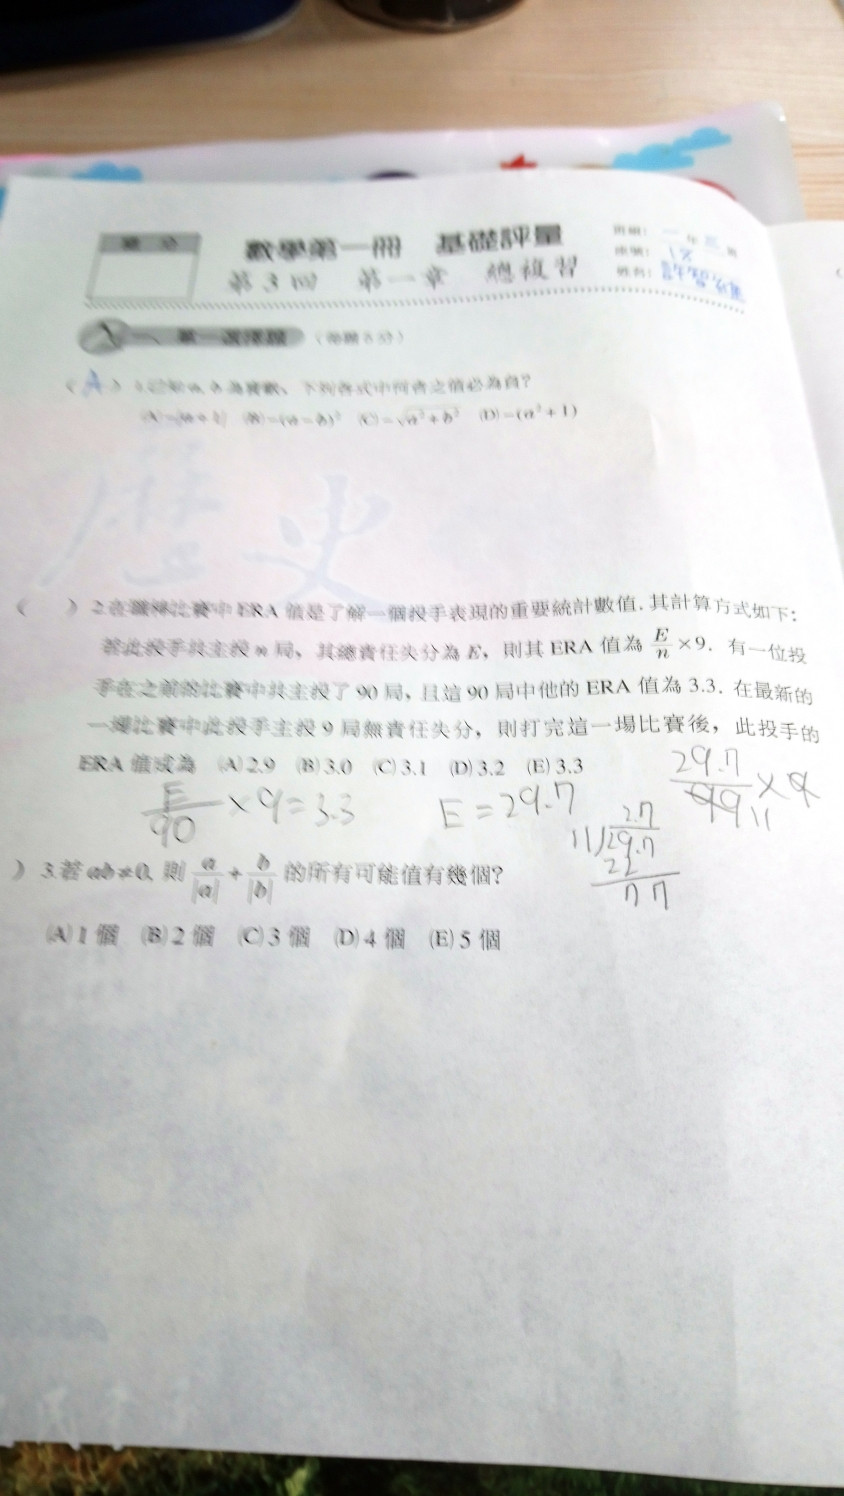 得分
數學第一冊 基礎評量
第3回 第一章 總複習
班級: 一年三班
座號: 18
姓名:
一、單一選擇題 (每題8分)
(A) 1.已知a, b為實數、下列各式中何者之值必為負?
(A)-|a+1| (B)-(a-b)² (C)-√a²+b² (D)-(a²+1)
歷史
( ) 2.在職棒比賽中ERA值是了解一個投手表現的重要統計數值.其計算方式如下:
若此投手共主投n局,其總責任失分為E,則其ERA值為E/n×9. 有一位投
手在之前的比賽中共主投了90局,且這90局中他的ERA值為3.3. 在最新的
一場比賽中此投手主投9局無責任失分,則打完這一場比賽後,此投手的
ERA值成為 (A)2.9 (B)3.0 (C)3.1 (D)3.2 (E)3.3
E/90×9=3.3 E=29.7 29.7/99×9
11
2.7
11/29.7
22
77
) 3.若ab≠0, 則a/|a|+b/|b|的所有可能值有幾個?
(A)1個 (B)2個 (C)3個 (D)4個 (E)5個